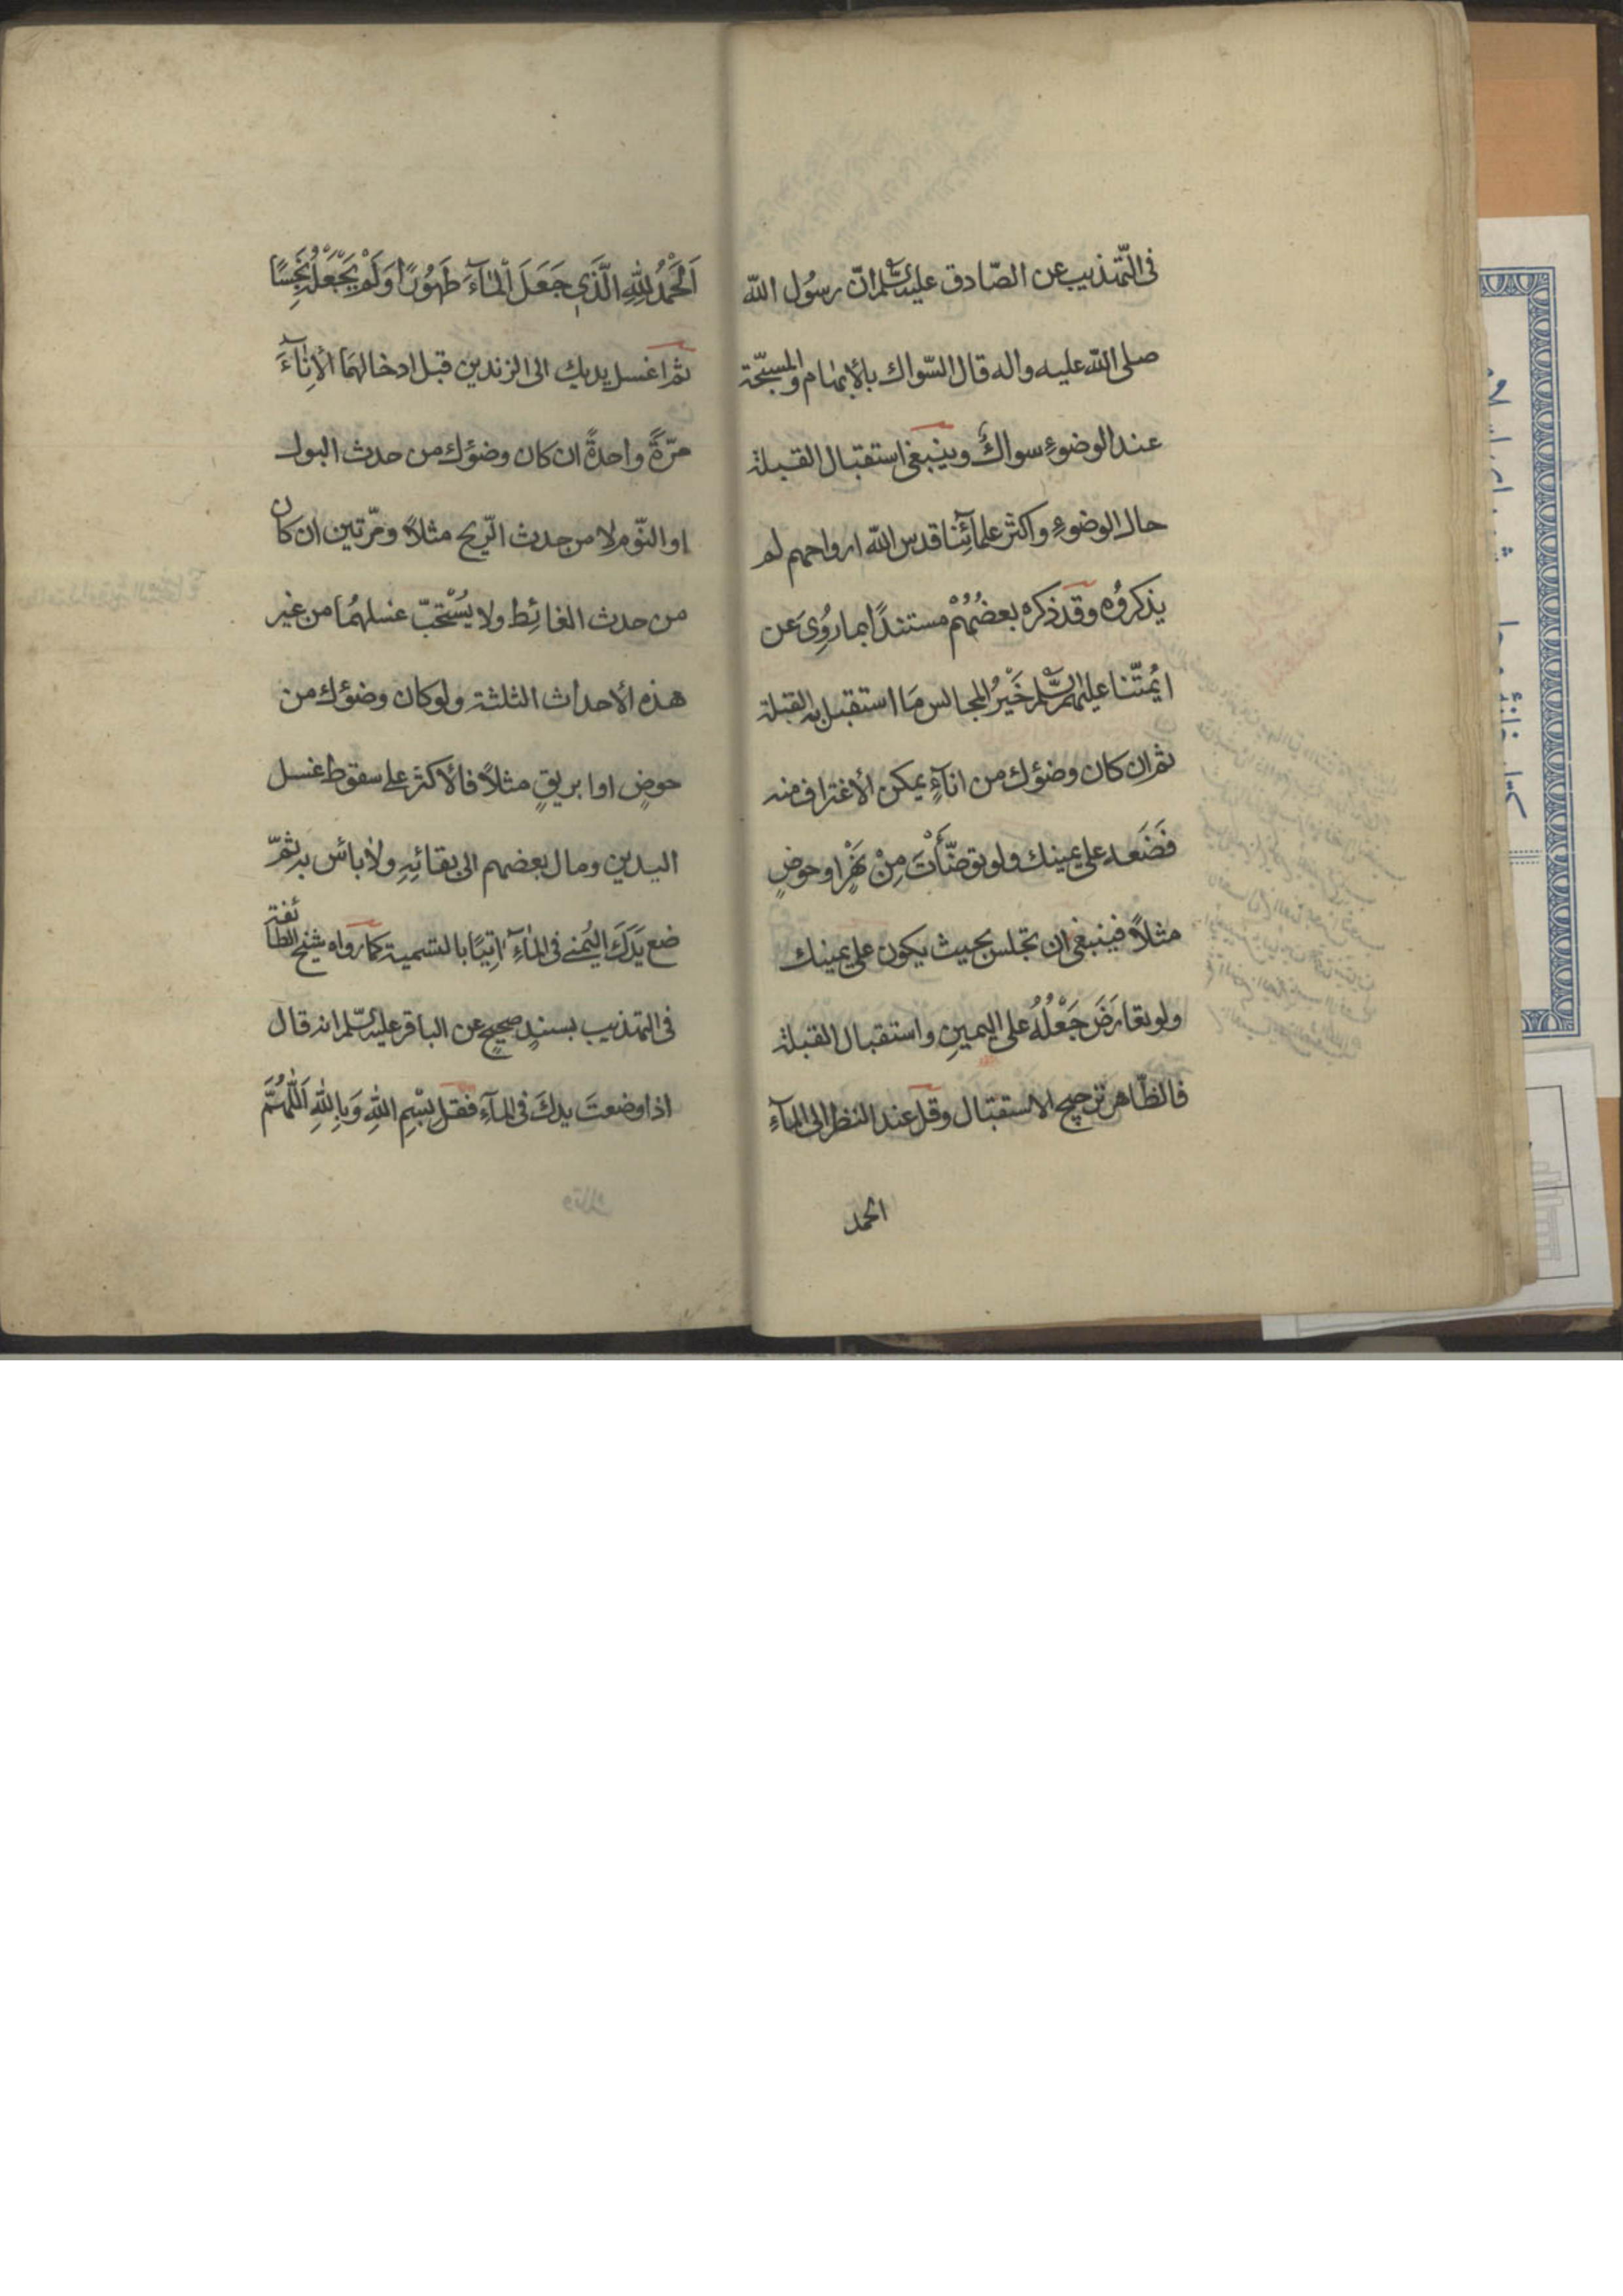 في التّهذيب عن الصّادق عليه السّلم انّ رسُول الله
صلى الله عليه واله قال السّواك بالأبهام والمسبّحة
عند الوضوءِ سواكٌ وينبغى استقبال القبلة
حال الوضوءِ واكثر علمآئنا قدس الله ارواحهم لم
يذكروُه وقد ذكره بعضُهُمْ مستندًا بما رُوِىَ عن
ائمّتنا عليهم السّلم خَيْرُ المجالس مَا استقبل به القبلة
ثم ان كان وضوئك من انآءٍ يمكن الأغتراف منه
فَضَعه على يمينك ولو توضّأْتَ مِنْ نَهْرٍ او حوضٍ
مثلاً فينبغى ان تجلس بحيث يكون على يمينك
ولو تعارَضَ جَعْلُهُ على اليمينِ واستقبال القبلة
فالظّاهر ترجيح الاستقبال وقل عند النظر الى المآءِ
الحمد
اَلْحَمْدُ لِلّٰهِ الَّذى جَعَلَ الْمٰآءَ طَهُورًا وَلَمْ يَجْعَلْهُ نَجِسًا
ثم اغسل يديك الى الزندين قبل ادخالهمَا الأِنآءَ
مرّةً واحدةً ان كان وضوئك من حدث البول
او النّوم لا من حدث الرّيح مثلاً ومرّتين ان كان
من حدث الغائِط ولا يُسْتَحَبّ غسلهُمَا من غير
هذه الأحداث الثلثة ولو كان وضوئك من
حوضٍ او ابريقٍ مثلاً فالأكثر على سقوط غسل
اليدين ومال بعضهم الى بقائِهِ ولا بائس به ثمّ
ضع يَدَكَ اليُمنى فى المٰآءِ اتِيًا بالتسمية كما رواه شيخ الطائفة
فى التهذيب بسندٍ صحيحٍ عن الباقر عليه السّلم انه قال
اذا وضعتَ يدكَ فى المآءِ فقل بِسْمِ اللهِ وَبِاللهِ اَللّٰهُمَّ